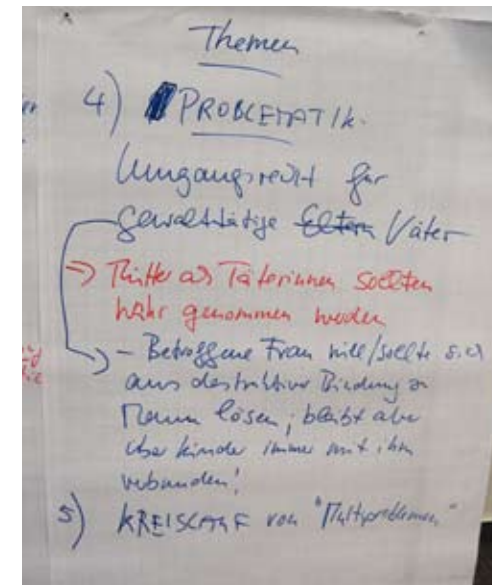 Themen
4) PROBLEMATIK
Umgangsrecht für
gewalttätige Eltern Väter
=> Mütter als Täterinnen sollten
wahr genommen werden
- Betroffene Frau will/sollte sich
aus destruktiver Bindung zu
Mann lösen, bleibt aber
über Kinder immer mit ihm
verbunden!
5) KREISLAUF von "Multiproblemen"